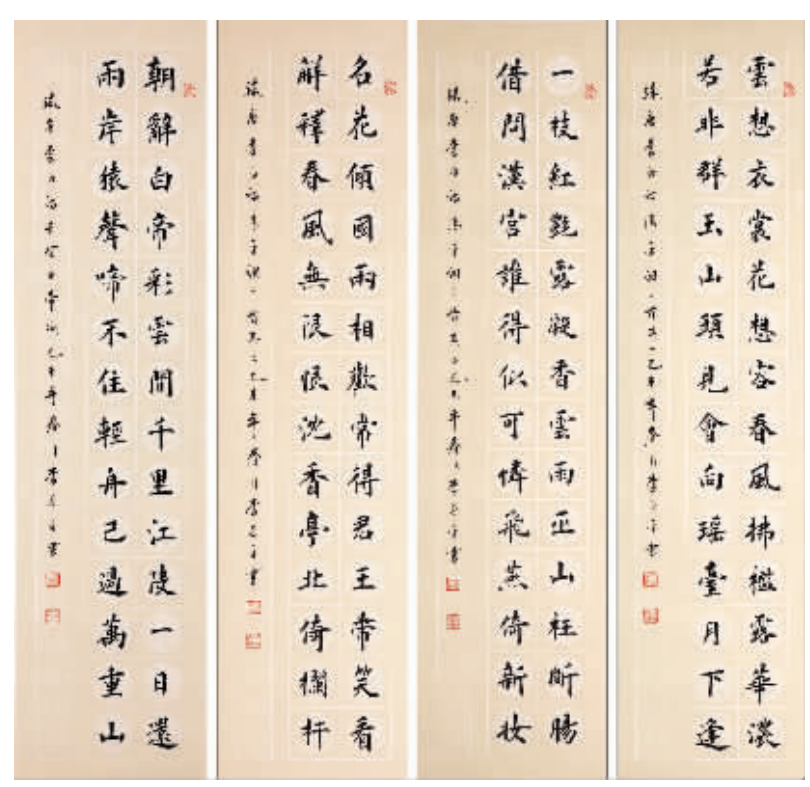 雲想衣裳花想容春風拂檻露華濃
若非群玉山頭見會向瑤臺月下逢
一枝紅艷露凝香雲雨巫山枉斷腸
借問漢宮誰得似可憐飛燕倚新妝
名花傾國兩相歡常得君王帶笑看
解釋春風無限恨沈香亭北倚欄杆
朝辭白帝彩雲間千里江陵一日還
兩岸猿聲啼不住輕舟已過萬重山